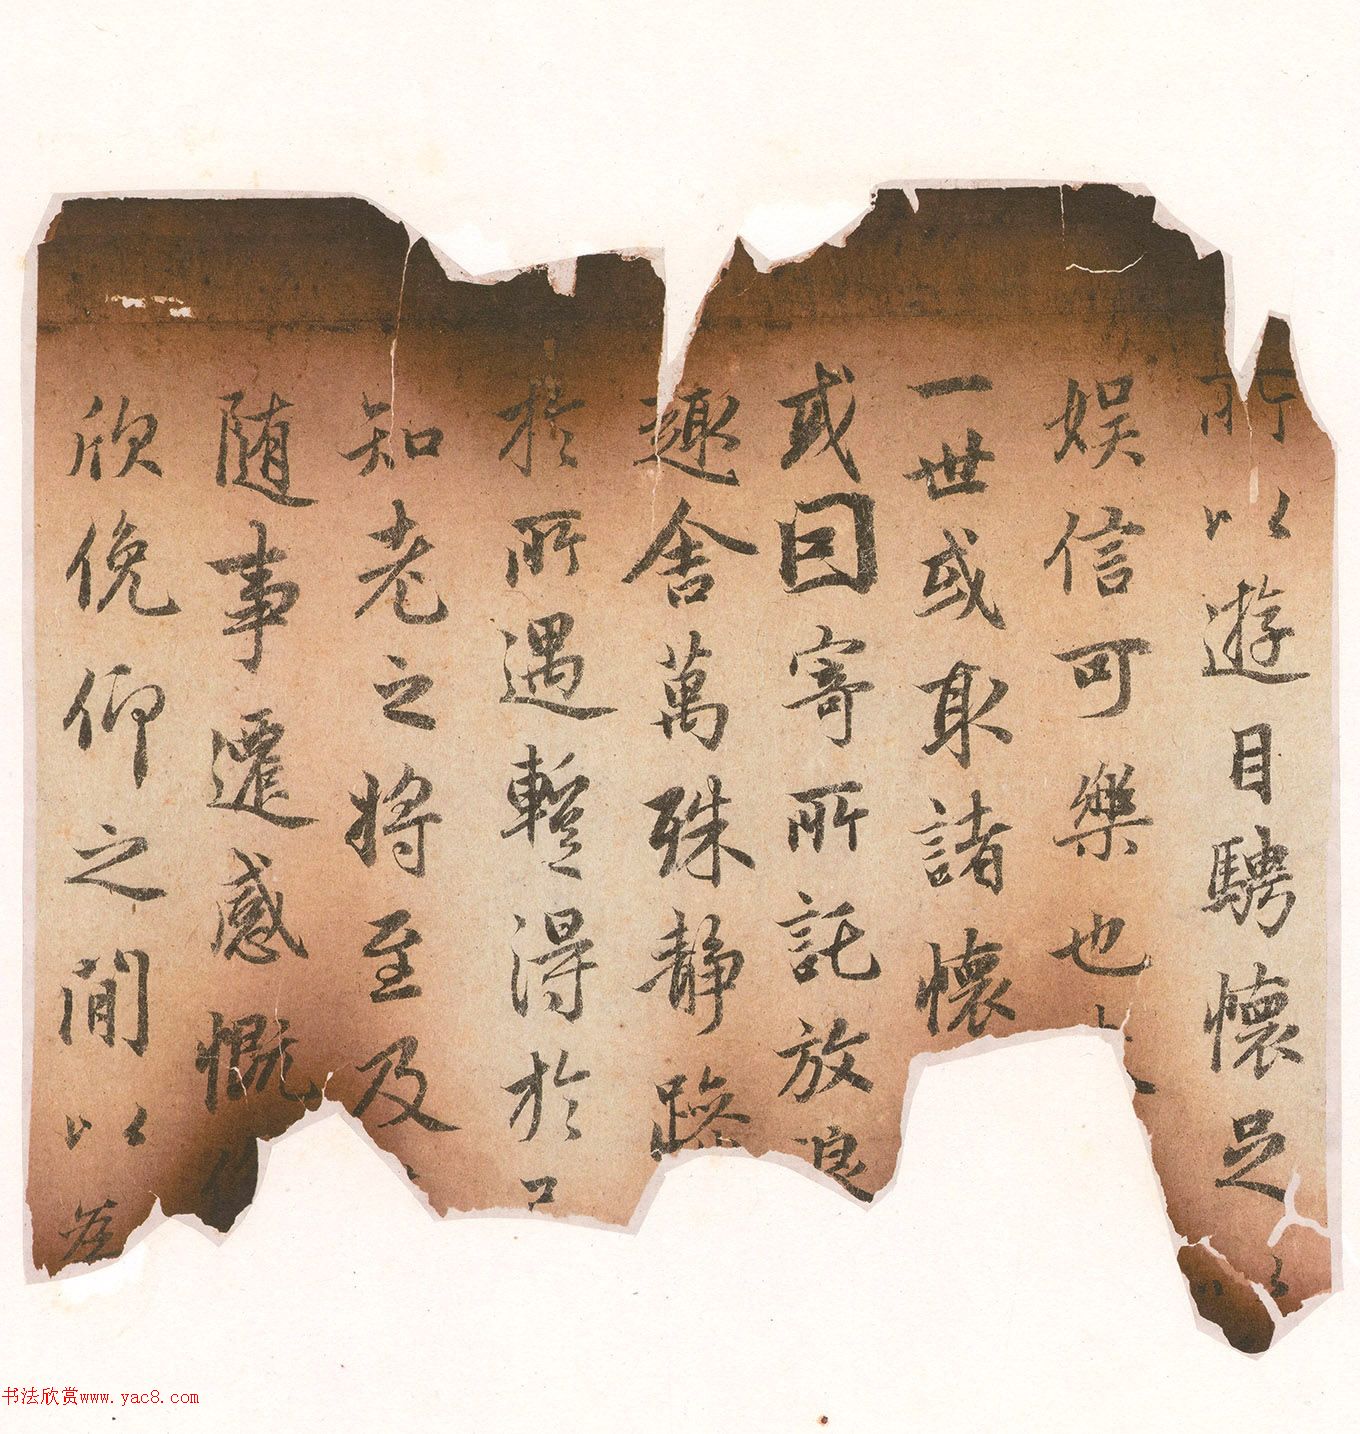 所以遊目騁懷足以
娛信可樂也夫
一世或取諸懷
或因寄所託放浪
趣舍萬殊静躁
於所遇暫得於
知老之将至及
随事遷感慨
欣俛仰之間以為
书法欣赏www.yac8.com